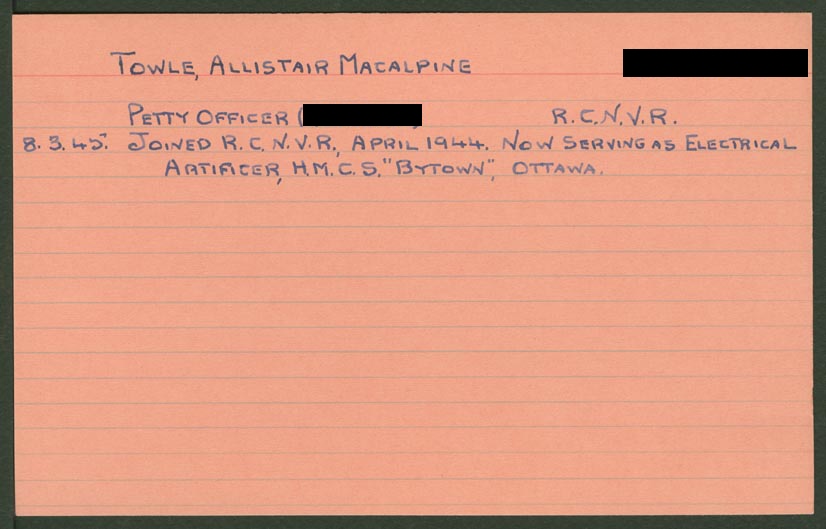 TOWLE, ALLISTAIR MACALPINE
PETTY OFFICER ( R.C.N.V.R.
8.3.45. JOINED R.C.N.V.R., APRIL 1944. NOW SERVING AS ELECTRICAL
ARTIFICER, H.M.C.S. "BYTOWN", OTTAWA.